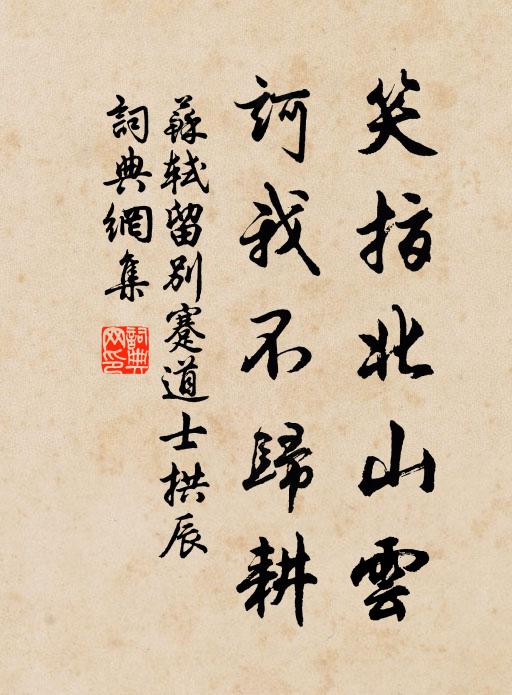 笑指北山雲
訶我不歸耕
蘇軾留別蹇道士拱辰
詞典網集
詞典網印